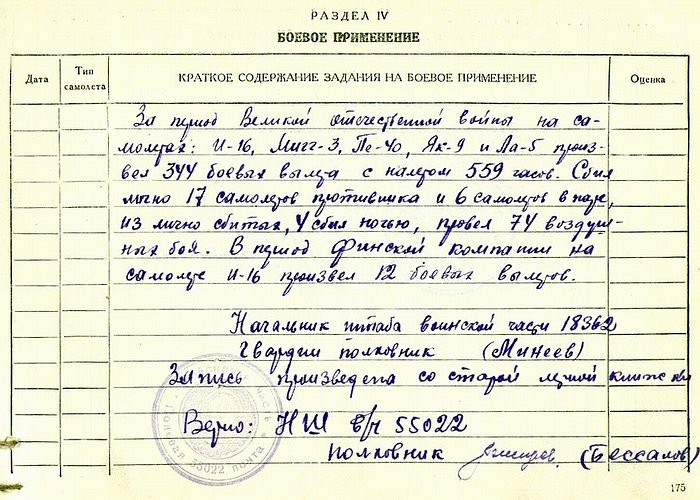 РАЗДЕЛ IV
БОЕВОЕ ПРИМЕНЕНИЕ
Дата
Тип самолета
КРАТКОЕ СОДЕРЖАНИЕ ЗАДАНИЯ НА БОЕВОЕ ПРИМЕНЕНИЕ
Оценка
За период Великой отечественной войны на са-
молетах: И-16, Мигг-3, Пе-40, Як-9 и Ла-5 произ-
вел 344 боевых вылета с налетом 559 часов. Сбил
лично 17 самолетов противника и 6 самолетов в паре,
из лично сбитых, 4 сбил ночью, провел 74 воздуш-
ных боя. В период финской компании на
самолете И-16 произвел 12 боевых вылетов.
Начальник штаба воинской части 18362
Гвардии полковник (Минеев)
Запись произведена со старой летной книжки
Верно: НШ в/ч 55022
полковник (Бессалов)
55022
175